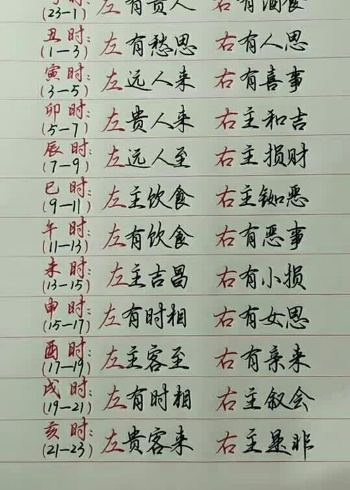 (23-1) 左有贵人 右有酒食
丑时: 左有愁思 右有人思
(1-3)
寅时: 左远人来 右有喜事
(3-5)
卯时: 左贵人来 右主和吉
(5-7)
辰时: 左远人至 右主损财
(7-9)
巳时: 左主饮食 右主
(9-11)
午时: 左有饮食 右有恶事
(11-13)
未时: 左主吉昌 右有小损
(13-15)
申时: 左有时相 右有女思
(15-17)
酉时: 左主客至 右有亲来
(17-19)
戌时: 左有时相 右主叙会
(19-21)
亥时: 左贵客来 右主是非
(21-23)